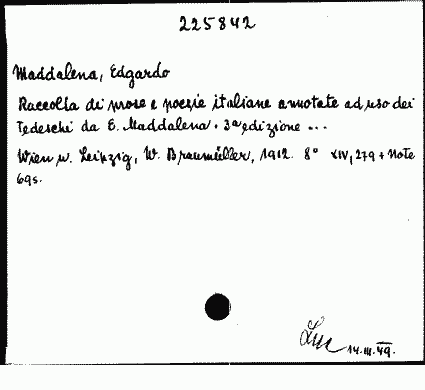 225842
Maddalena, Edgardo
Raccolta di prose e poesie italiane annotate ad uso dei
Tedeschi da E. Maddalena. 3ª edizione ...
Wien u. Leipzig, W. Braumüller, 1912. 8° XIV, 279 + Note
69s.
14.III.49.